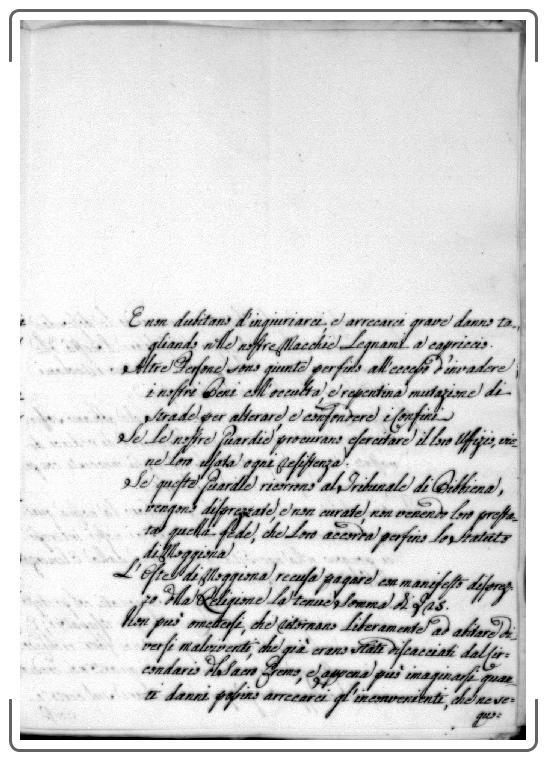 E non dubitano d'ingiuriarci, e arrecarci grave danno ta-
gliando nelle nostre Macchie Legnami a capriccio.
Altre Persone sono giunte perfino all'eccesso d'invadere
i nostri Beni coll'occulta, e repentina mutazione di
Strade per alterare e confondere i Confini
Se le nostre Guardie procurano esercitare il loro Uffizio, vie-
ne loro usata ogni resistenza.
Se queste Guardie ricorrono al Tribunale di Bibbiena,
vengono disprezzate e non curate, non venendo loro presta-
ta quella fede, che loro accorda perfino lo Statuto
di Moggiona
L'Oste di Moggiona recusa pagare con manifesto disprez-
zo della Religione la tenue somma di
Non può omettersi, che ritornano liberamente ad abitare di-
versi maleviventi, che già erano stati discacciati dal Cir-
condario del Sacro Eremo, e appena può imaginarsi quan-
ti danni possino arrecarci gl'inconvenienti, che ne se-
guo-